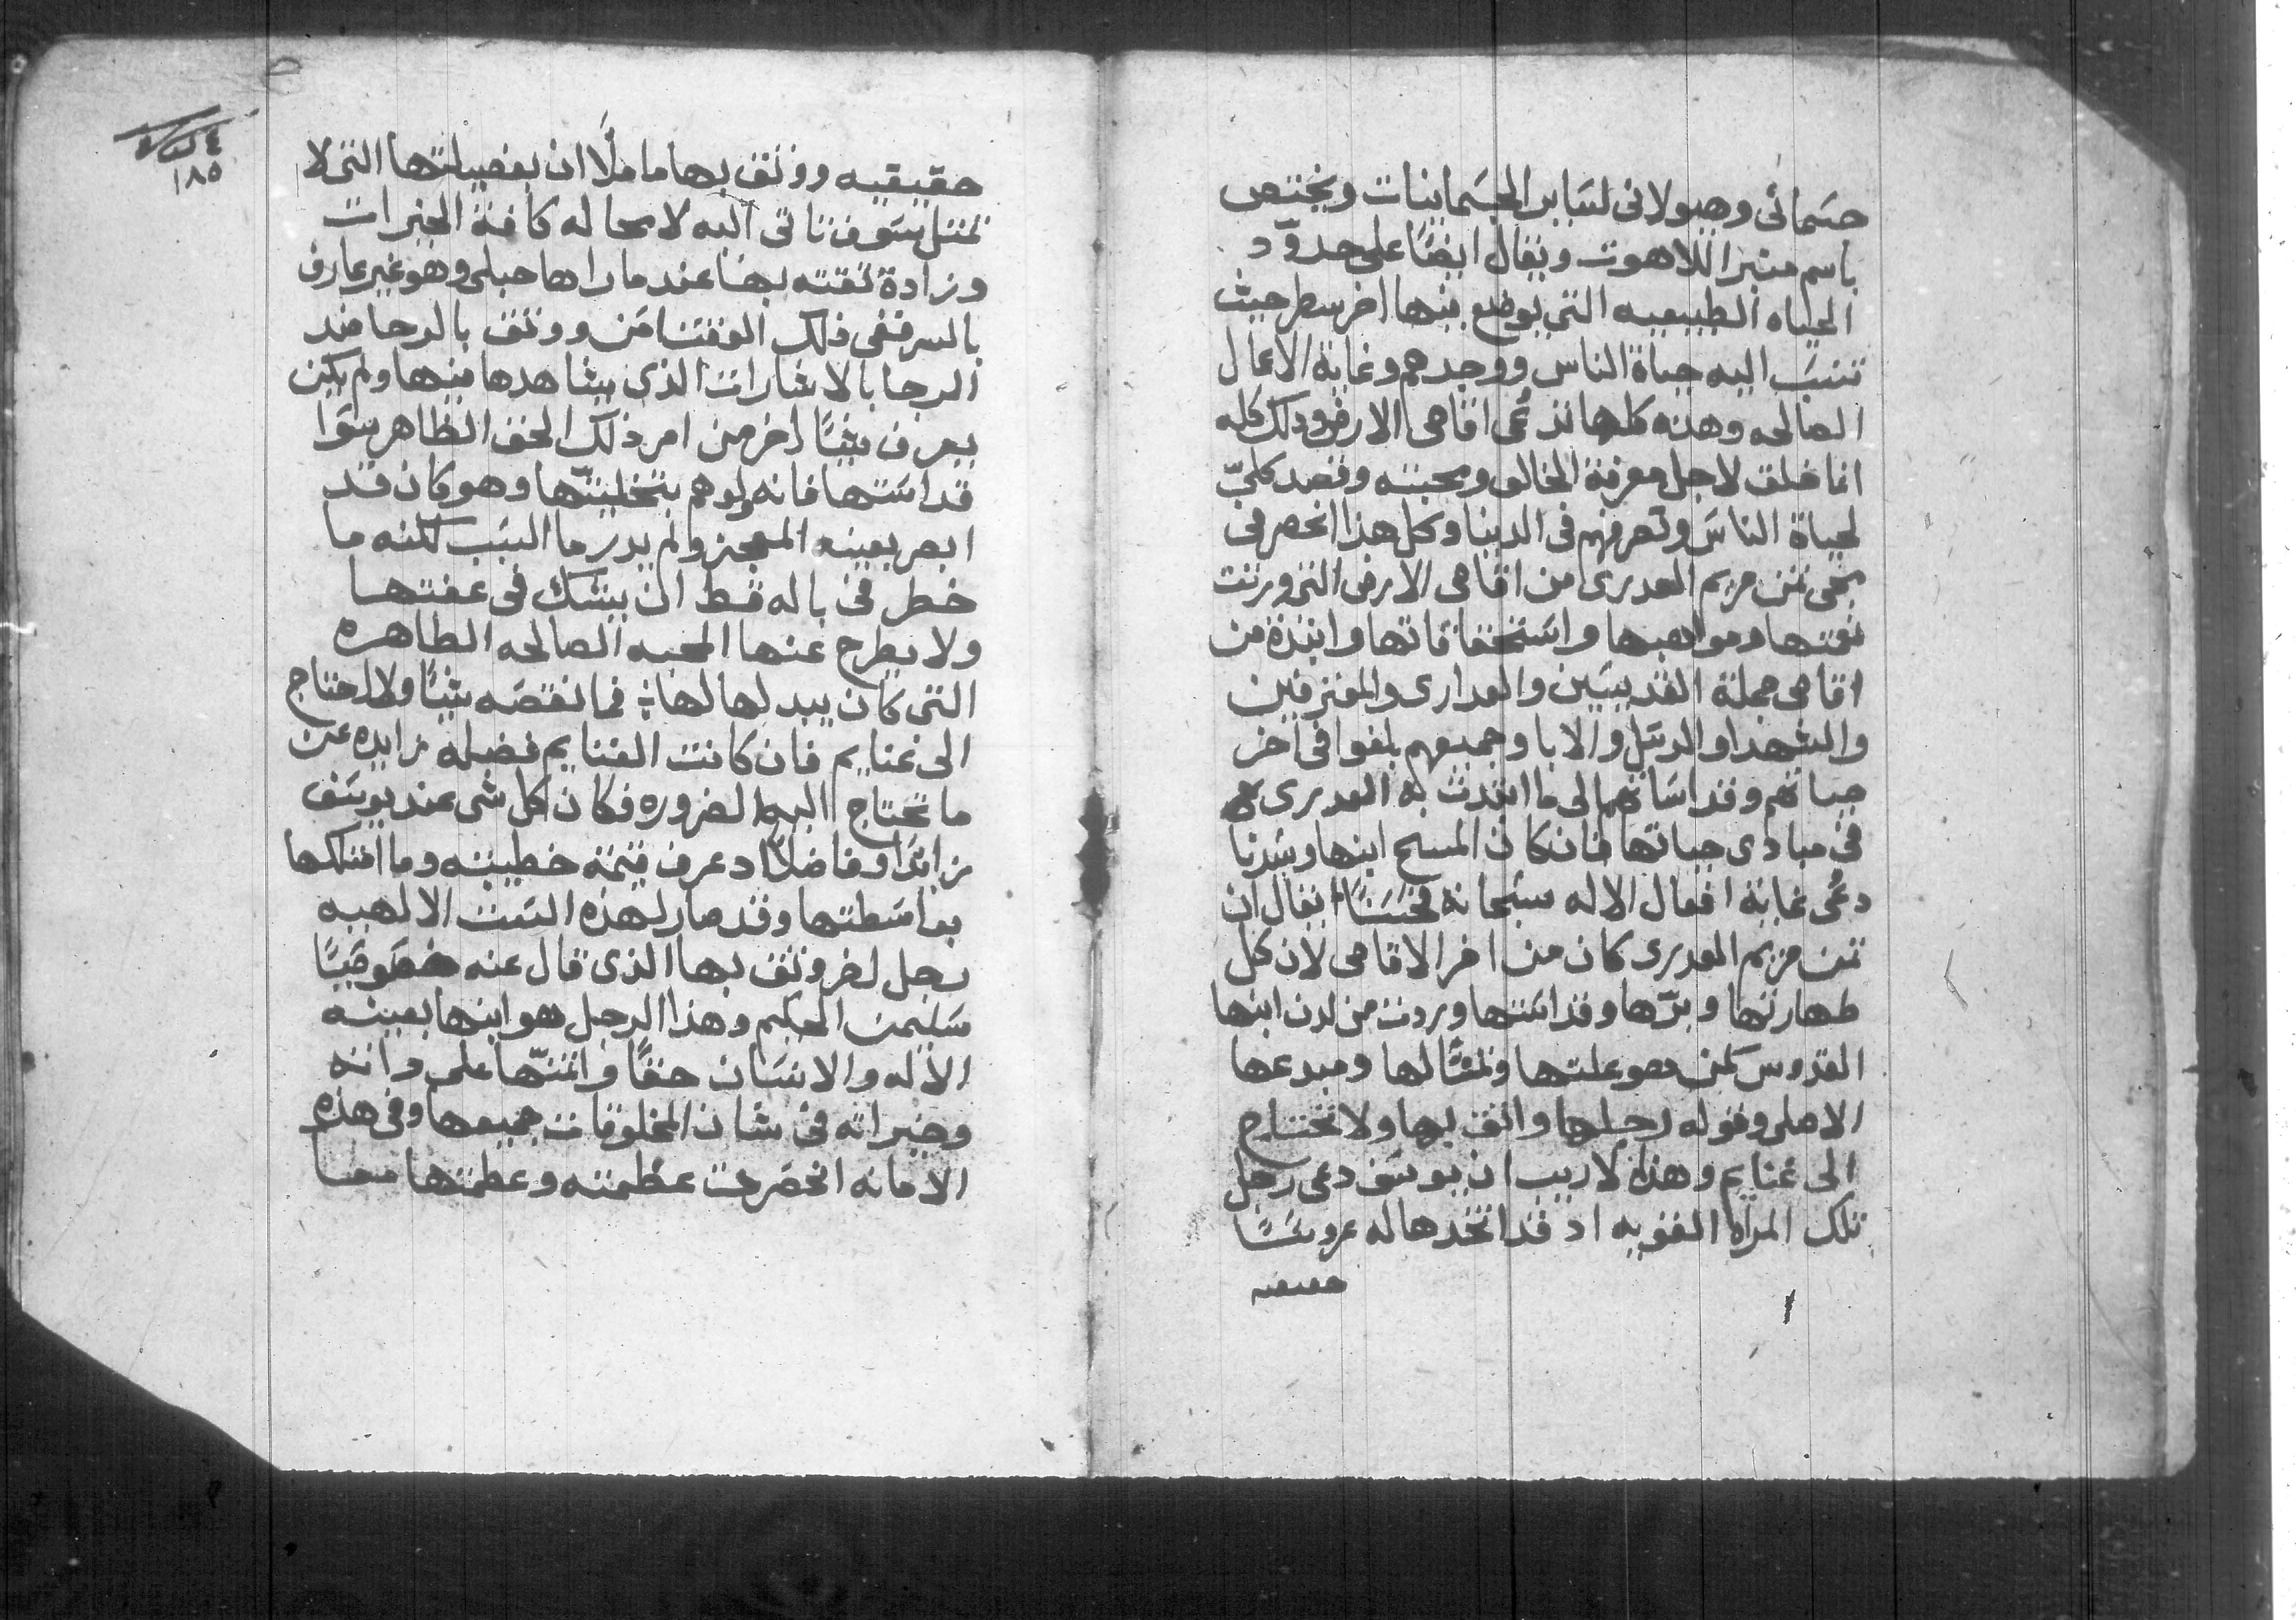 جسمانى وهيولانى لساير الجسمانيات ويختص
باسم متبرا اللاهوت ويقال ايضًا على حدوّد
الحياه الطبيعيه التى يوضع فيها اخر سطر حيث
تنسَب اليه حياة الناس ووجدهم وغاية الاعمال
الصالحه وهذه كلها تدعُى اقاصى الارض وذلك كله
انما خلق لاجل معرفة الخالق ومحبته وقصد كلىّ
لحياة الناسَ وتصرفهم فى الدنيا وكل هذا انحصر فى
مجى ثمن مريم العدرى من اقاصى الارض التى ورتت
نعمتها ومواهبها واستَحقاقاتها وابتدة من
اقاصى جملة القديسَين والعدارى والمعترفين
والشهدا والرسَل والابا وجميعهم بلغوا فى اخر
حياتهم وقداسَاتهم الى ما ابتدت به العدرى هى
فى مبادى حياتها فان كان المسيح ابنها وسَيدنا
دعُى غاية افعال الاله سبَحانه فحَسَنًا يقال ان
ثمن مريم العدرى كان من اخر الاقاصى لان كل
طهارتها وبرّها وقداسَتها وردت من لدن ابنها
القدوس كمن هو علتها وتمثالها ومبدعها
الاصلى وقوله رجلها واثق بها ولا تحتاج
الى غنايم وهذا لا ريب ان يوسَف دعى رجل
تلك المراه القويه اد قد اتخدها له عروسًَا
حقيقيه
٤ كراس
١٨٥
حقيقيه ووثق بها ماملًا ان بفضيلتها التى لا
تمتل سَوف تاتى اليه لا محاله كافة الخيرات
وزادة ثقته بها عند ما راها حبلى وهو غير عارف
بالسر ففى ذلك الوقت امَن ووثق بالرجا ضد
الرجا بالاشارات الذى يشاهدها فيها ولم يكن
يعرف شيًا اخر من امر ذلك الحق الظاهر سَوا
قداسَتها فانه لوهم بتخليتّها وهو كان قد
ابصر بعينه المعجز ولم يدر ما السَبب لكنه ما
خطر فى باله قط ان يشك فى عفتها
ولا يطرح عنها المحبه الصالحه الطاهره
التى كان يبدلها لها فما نقصَه شيًا ولا احتاج
الى غنايم فان كانت الغنايم فضله زايده عن
ما تحتاج اليها الضروره فكان كل شى عند يوسَف
زايدًا وفاضلًا اد عرف قيمة خطيبته وما امتلكها
بواسَطتها وقد صار لهذه السَت الالهيه
رجل اخر وثق بها الذى قال عنه خصَوصَيًا
سَليمن الحكيم وهذا الرجل هو ابنها بعينه
الاله والانسَان حقًا وائتمنّها على داته
وخيراته فى شان المخلوقات جميعها وفى هذه
الامانه انحصَرت عظمته وعظمتها معا